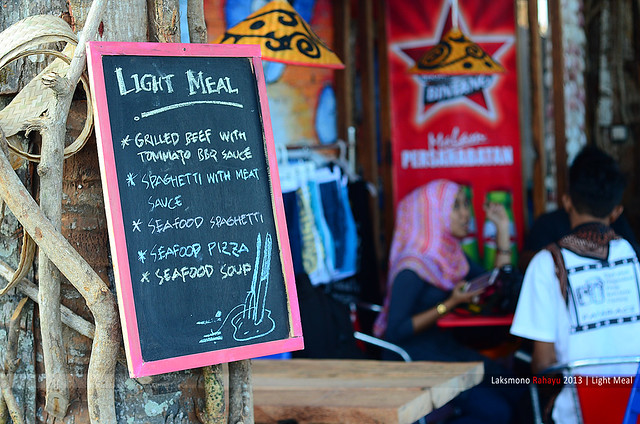 LIGHT MEAL
* GRILLED BEEF WITH
TOMMATO BBQ SAUCE
* SPAGHETTI WITH MEAT
SAUCE
* SEAFOOD SPAGHETTI
* SEAFOOD PIZZA
* SEAFOOD SOUP
BINTANG
Malam
PERSAHABATAN
Laksmono Rahayu 2013 | Light Meal